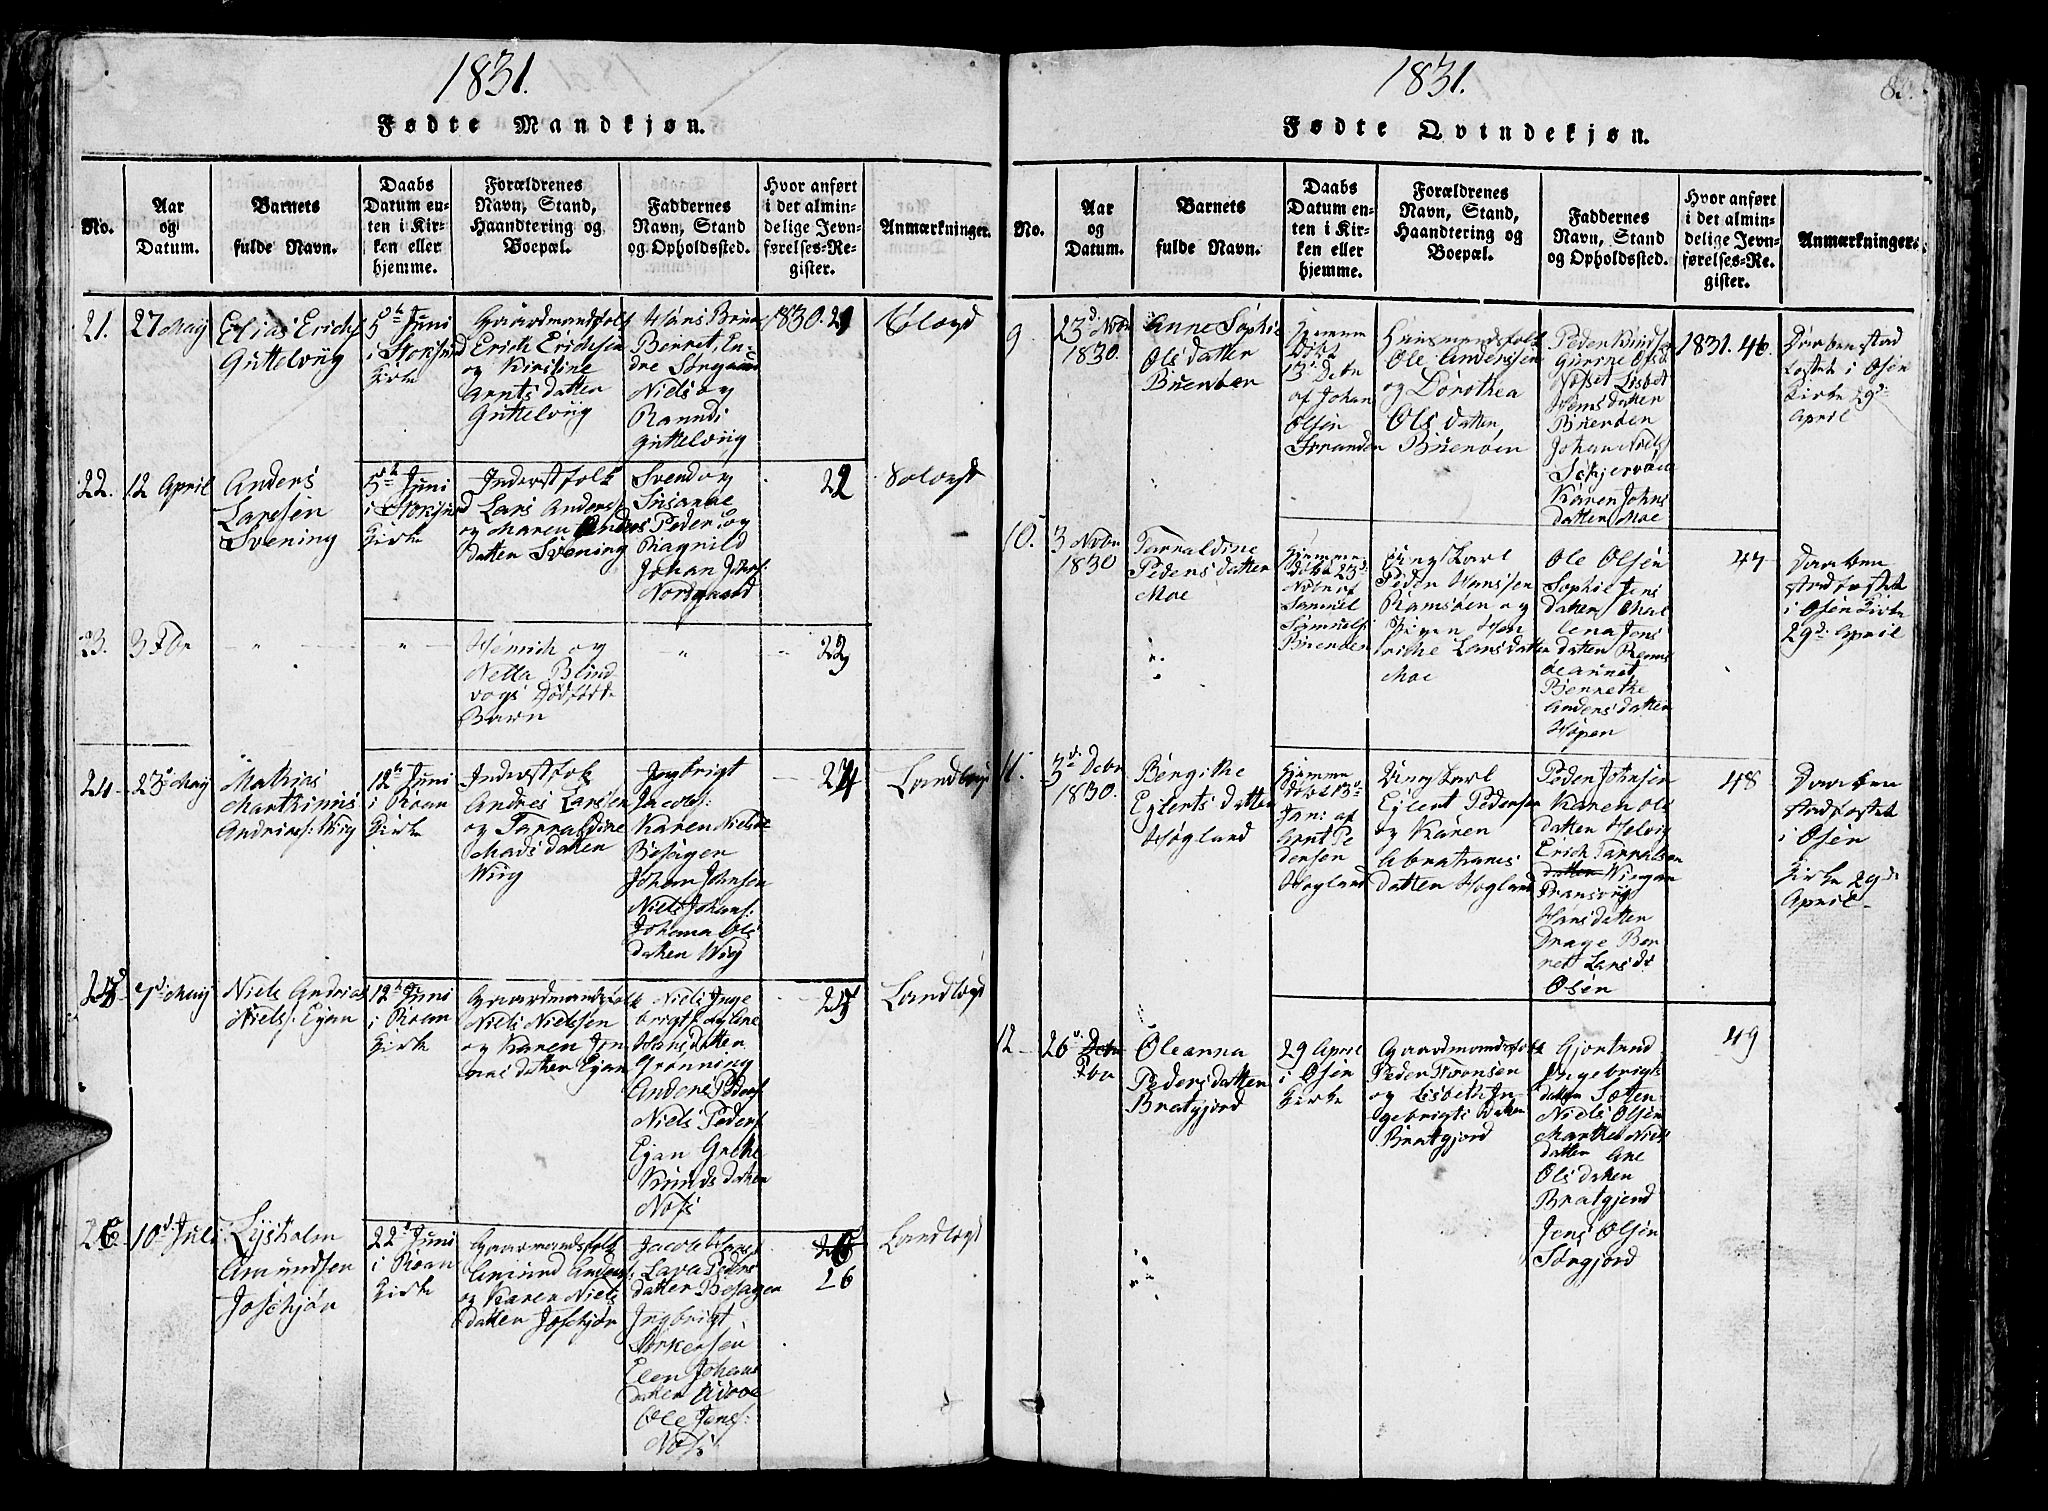 1831.
Fødte Mandkjøn.
No.
Aar
og
Datum.
Barnets
fulde Navn.
Daabs
Datum en-
ten i Kir-
ken eller
hjemme.
Forældrenes
Navn, Stand,
Haandtering og
Boepæl.
Faddernes
Navn, Stand
og Opholdssted.
Hvor anført
i det almin-
delige Jevn-
førelses-Re-
gister.
Anmærkninger.
21.
27 May
Elias Erichs
Guttelviig
5th Juni
i Stoksund
Kirke
Gaardmandsfolk
Erich Erichsen
og Kirstine
Arntsdatter
Guttelviig
Hans Brun
Berret, En-
dre Sørgaard
Niels og
Ranndi
Guttelviig
1830. 21
22.
12 April
Anders
Larssen
Svening
5th Juni
i Stoksund
Kirke
Inderstfolk
Lars Anders
og Maren Anders
datter Svening
Svend og
Susanne
Peder og
Ragnild
Johan Johs:
Nordgaard
22
23.
3 Fbr
"
"
Henrich og
Netta Blind
vogs Dødfødt
Barn
"
23
24
23 May
Mathias
Marthinus
Andrias: Wiig
12th Juni
i Roan
Kirke
Inderstfolk
Andres Larssen
og Tarraldine
Madsdatter
Wiig
Ingbrigt
Jacobs:
Karen Nielsd
Besagen
Johan Johnsen
Niels Johans:
Johanna Ols
datter Wiig
24
Landlagt
25
7d May
Niels Andrias
Niels: Eian
12th Juni
i Roan
Kirke
Gaardmandsfolk
Niels Nielssen
og Karen Jon
nasdatter Eian
Niels Inge
brigts og Ane
Hansdatter
Grønning
Anders Peders
Niels Peders
Eian Grethe
Knudsdatter
Nots
25
Landlagt
26
10d Juli
Lysholm
Amundsen
Joschjør
22d Juni
i Roan
Kirke
Gaarmandsfolk
Amund Anders:
og Karen Niels
datter Joschjør
Jacob Hans
Lava Peders
datter Besagen
Ingbrigt
Sørkersen
Elen Johans
datter
Ole Jons:
Nots
26
Landlagt
1831.
Fødte Qvindekjøn.
No.
Aar
og
Datum.
Barnets
fulde Navn.
Daabs
Datum en-
ten i Kir-
ken eller
hjemme.
Forældrenes
Navn, Stand,
Haandtering og
Boepæl.
Faddernes
Navn, Stand
og Opholdssted.
Hvor anført
i det almin-
delige Jevn-
førelses-Re-
gister.
Anmærkninger.
9
23d Nvbr
1830.
Anne Sophie
Olsdatter
Buenøen
Hjemme
Døbt
13 Debr
af Johan
Olsen
Stranden
Huusmandsfolk
Ole Anderssen
og Dorothea
Olsdatter,
Buenøen
Peder Knuds
Gurrne Olsd
Nøsset Lisbet
Hemsdatter
Buenøen
Johan Niels
Schjervøen
Karen Johns
datter Moe
1831. 46.
Daaben stad
fæstet i Osen
Kirke 29d:
April
10.
3 Nvbr
1830
Tarraldine
Pedersdatter
Moe
Hjemme
døbt 23d
Nvbr af
Samuel
Samuels
Buenøen
Ungkarl
Peder Hanssen
Ramsøen og
Pigen Hen
riche Larsdatter
Moe
Ole Olsen
Sophie Jens
datter Mal
lena Jons
datter Rams
øe
Berrethe
Andersdatter
Hopen
47
Daaben
stadfæstet
i Osen Kirke
29d: April
11.
3d Debr
1830.
Bergithe
Eylertsdatter
Høgland
Hjemme
døbt 13d
Jan: af
Arnt Pe
dersen
Høgland
Ungkarl
Eylert Pedersen
og Karen
Abrahams
datter Høgland
Peder Johnsen
Karen Ols
datter Helvig
Erich Tarralsen
datter Wiegan
Hansdatter
Drage Ber
ret Larsdr
Osen
48
Daaben
stadfæstet
i Osen
Kirke 29d
April
12
26d Debr
Fbr
Oleanna
Pedersdatter
Bratgjord
29 April
i Osen
Kirke
Gaardmandsfolk
Peder Thronsen
og Lisbeth In
gebrigtsdatter
Bratgjord
Gjertrud
Ingebrigt
datter Sætter
Niels Olsen
Marthe Niels
datter Ane
Olsdatter
Bratgjerd
Jens Olsen
Sørgjord
49